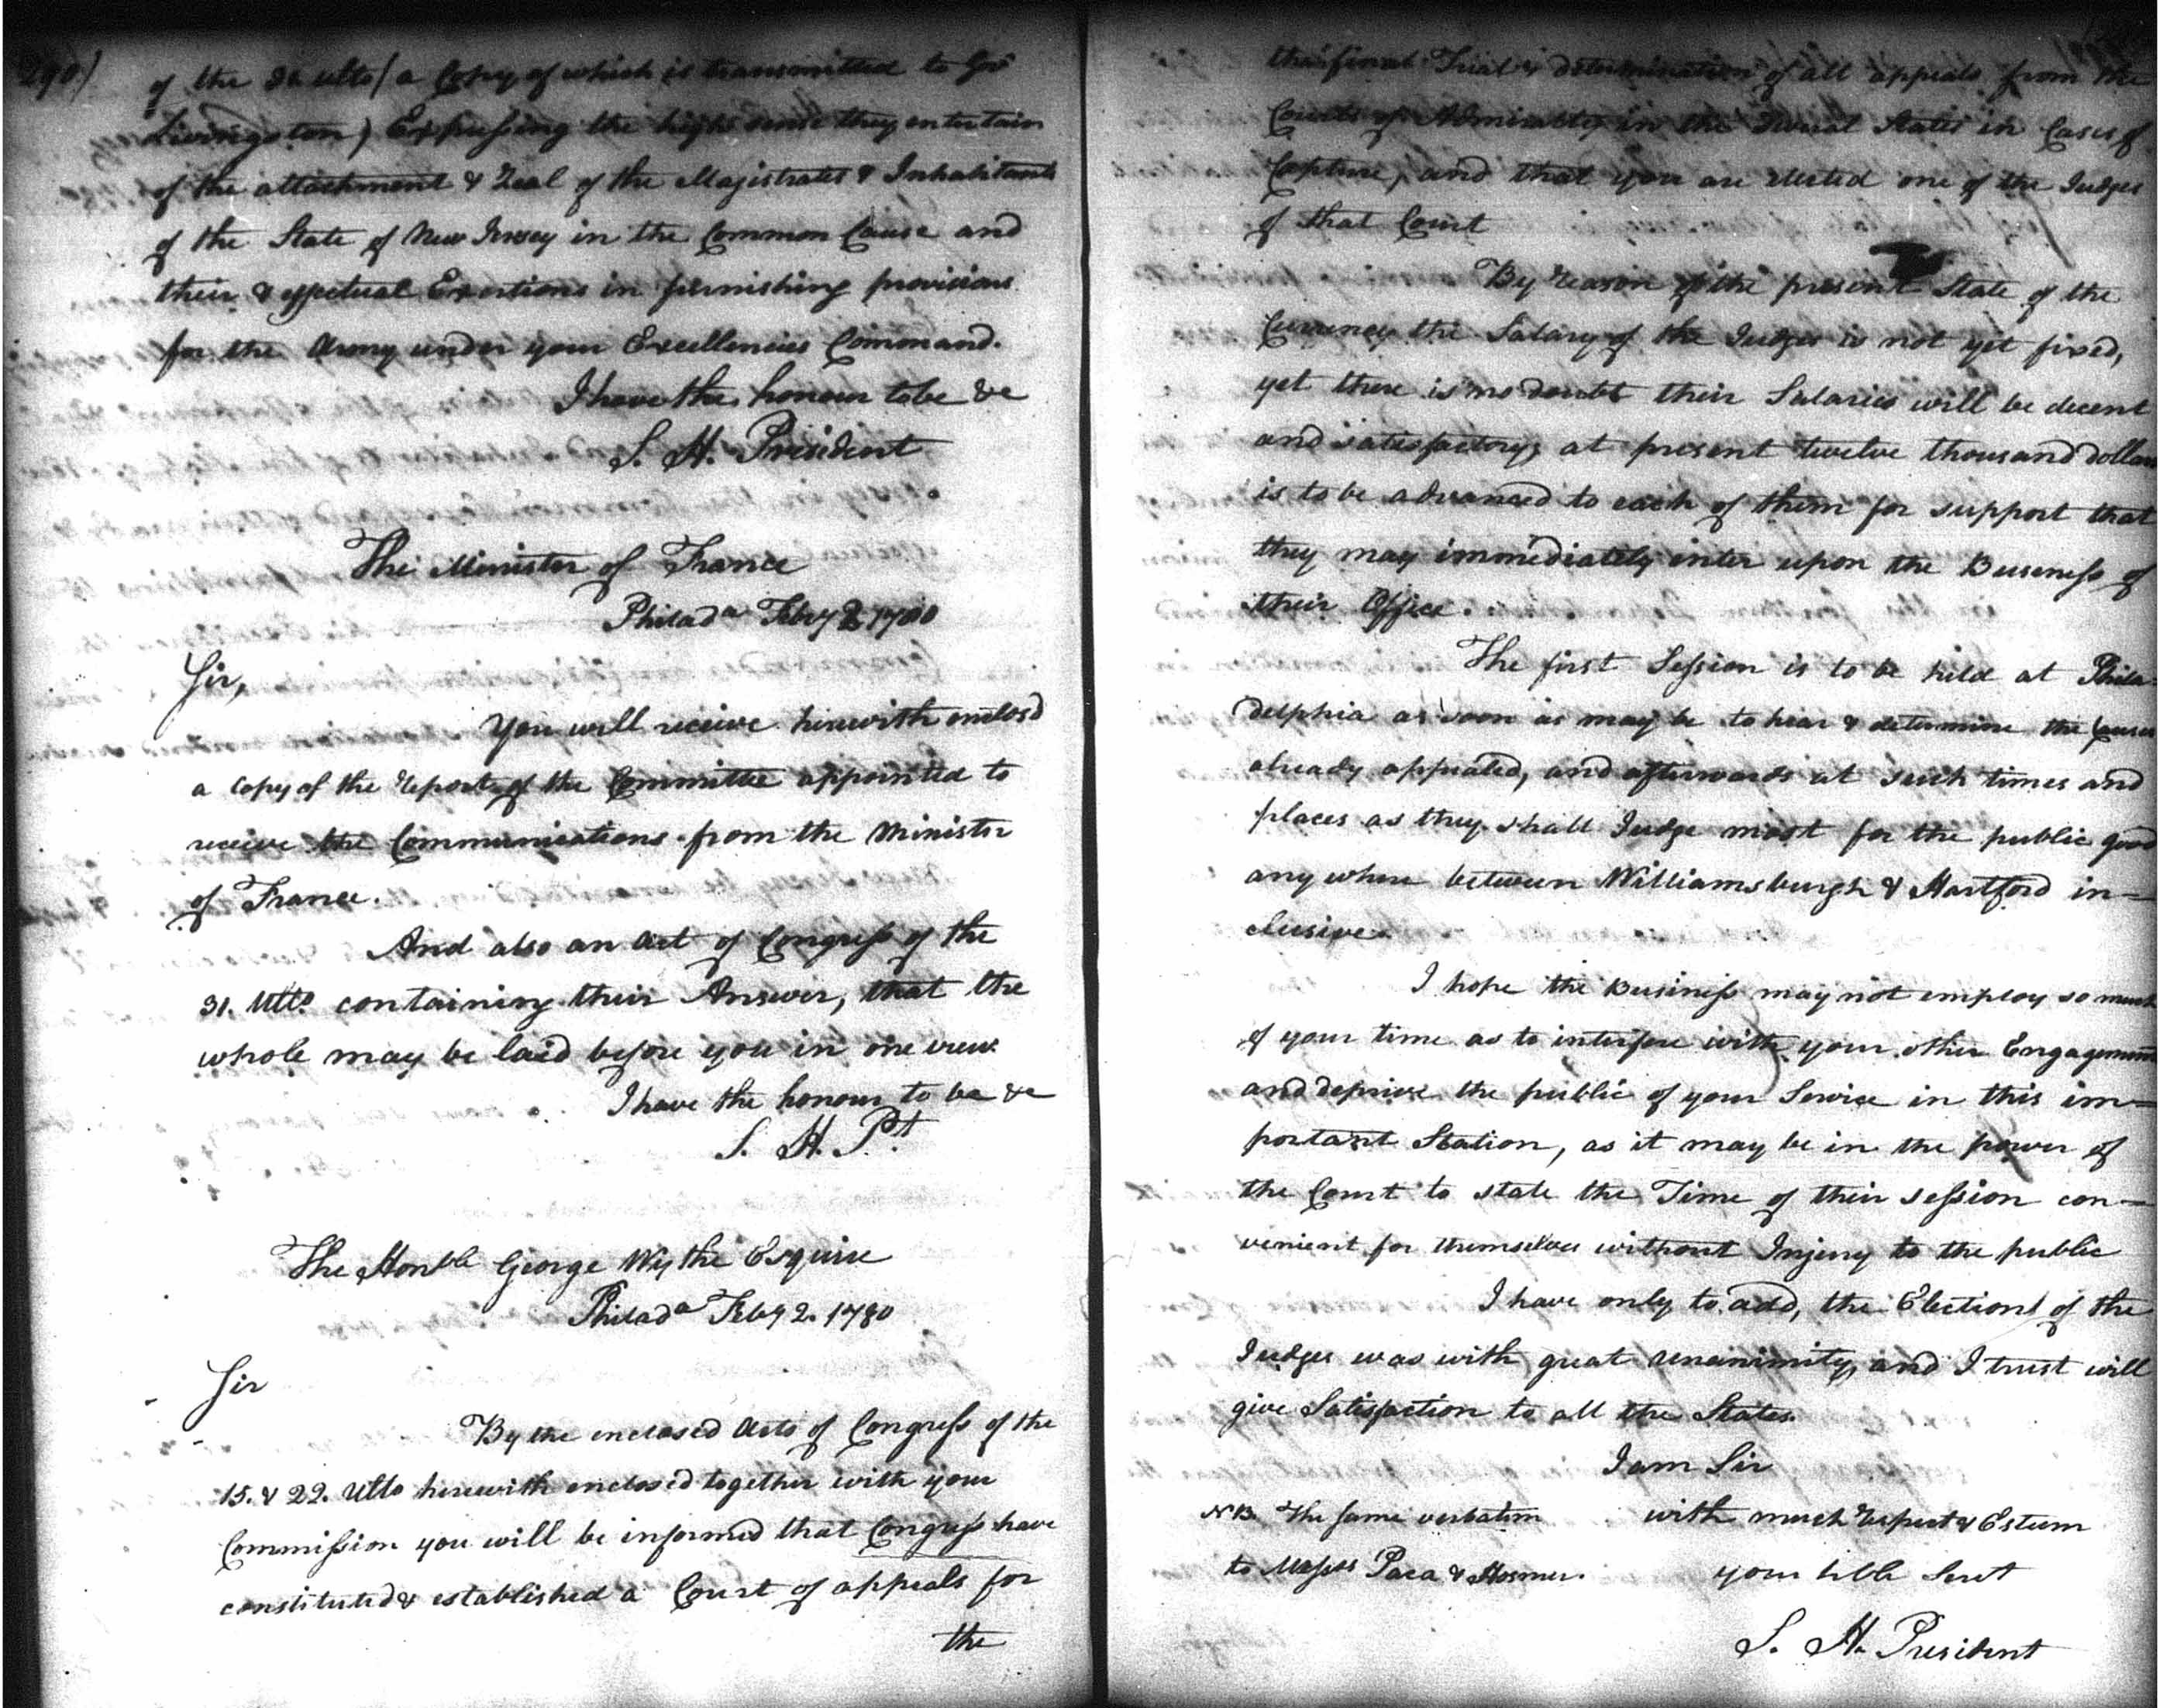 290)
of the 26 ulto (a Copy of which is transmitted to Gov
Livingston) Expressing the high sense they entertain
of the attachment & Zeal of the Majistrates & Inhabitants
of the State of New Jersey in the Common Cause and
their & effectual Exertions in furnishing provisions
for the Army under your Excellencies Command.
I have the honour to be &c
S. H. President
The Minister of France
Philada Feby 2 1780
Sir,
You will receive herewith enclosd
a Copy of the report of the Committee appointed to
receive the Communications from the Minister
of France.
And also an Act of Congress of the
31. Ulto containing their Answer, that the
whole may be laid before you in one view
I have the honour to be &c
S. H. Pt.
The Honble George Wythe Esquire
Philada Feby 2. 1780
Sir
By the enclosed Acts of Congress of the
15. & 22. Ulto herewith enclos'd together with your
Commission you will be informed that Congress have
constituted & established a Court of appeals for
the
the final Trial & determination of all appeals from the
Courts of Admiralty in the several States in Cases of
Capture, and that you are elected one of the Judges
of that Court
By reason of the present State of the
Currency the Salary of the Judges is not yet fixed,
yet there is no doubt their Salaries will be decent
and satisfactory, at present twelve thousand dollars
is to be advanced to each of them for support that
they may immediately inter upon the Buseness of
their Office.
The first Session is to be held at Phila=
delphia as soon as may be to hear & determine the Causes
already appealed, and afterwards at such times and
places as they shall Judge most for the public good
any where between Williamsburgh & Hartford in=
clusive.
I hope the Business may not employ so much
of your time as to interfere with your other Engagements
and deprive the public of your Service in this im=
portant Station, as it may be in the power of
the Court to state the Time of their session con=
venient for themselves without Injury to the public
I have only to add, the Election of the
Judges was with great unanimity, and I trust will
give Satisfaction to all the States.
I am Sir
with much respect & Esteem
your hble Servt
S. H. President
NB. The same verbatim
to Messrs Paca & Hosmer.